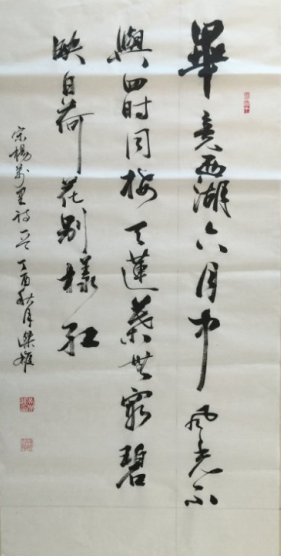 畢竟西湖六月中風光不
與四时同接天蓮葉無窮碧
映日荷花别樣红
宋楊萬里詩一首丁酉秋月